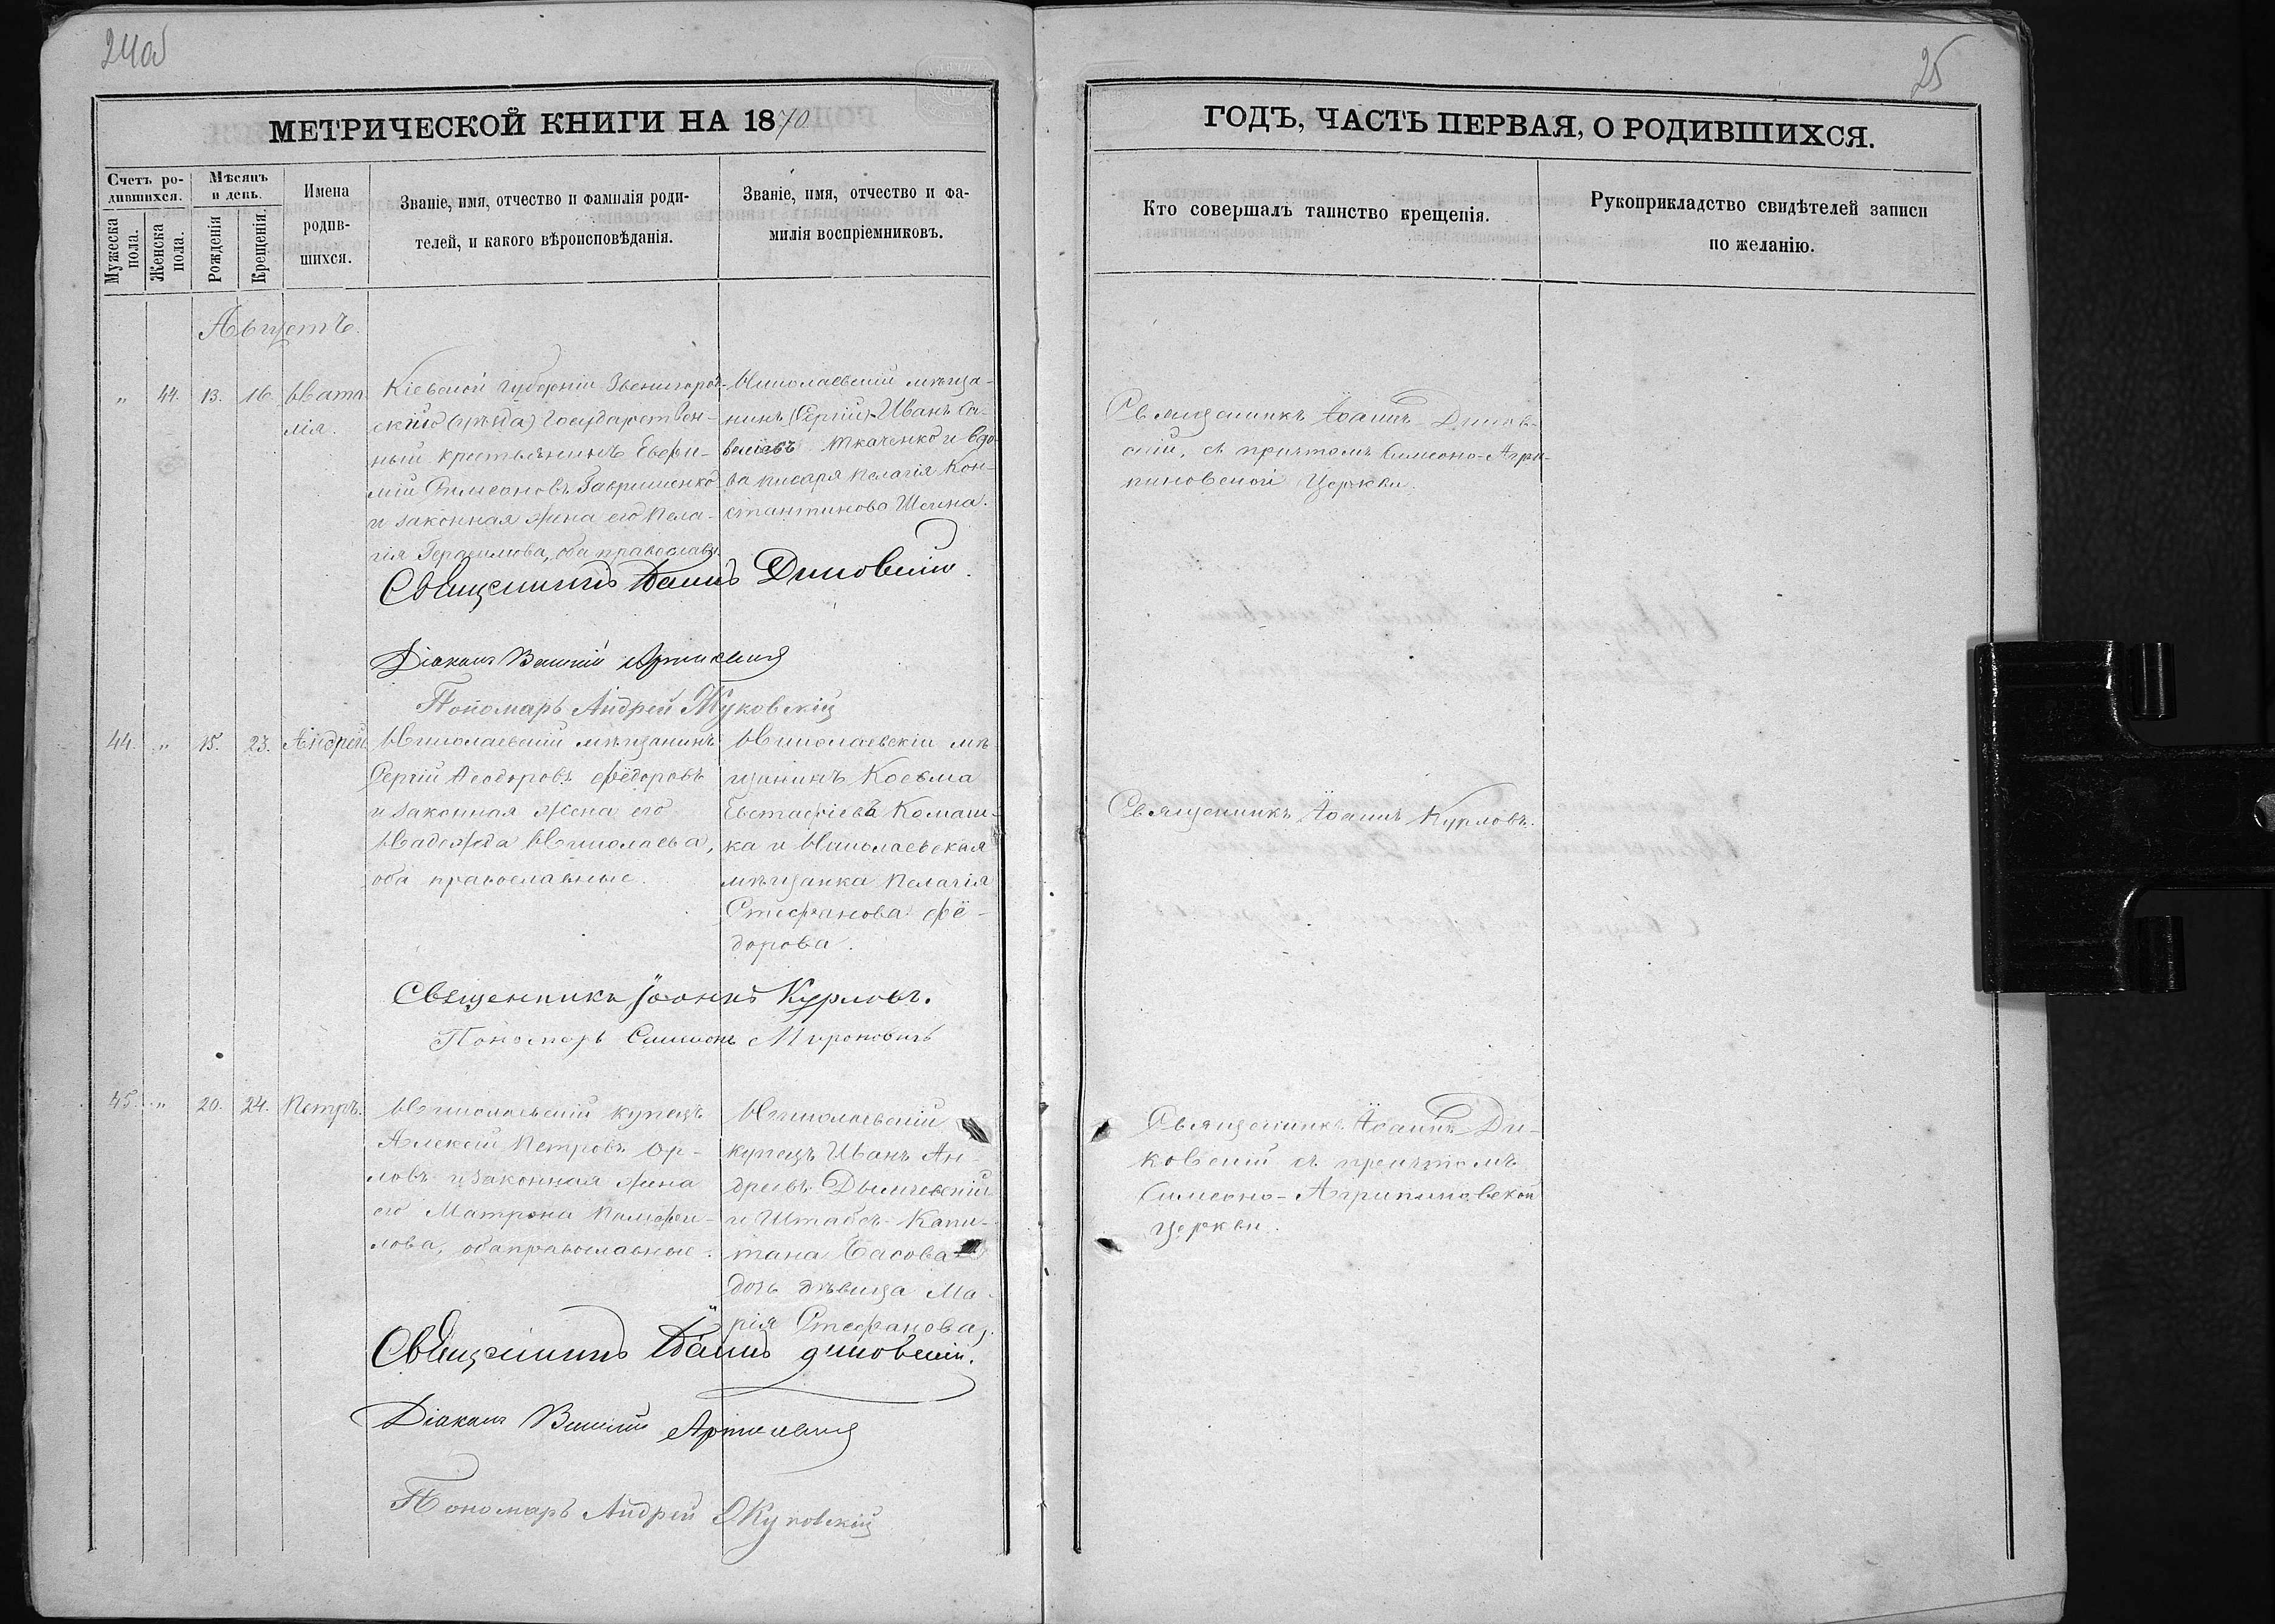 24об
25
МЕТРИЧЕСКОЙ КНИГИ НА 1870
ГОДЪ, ЧАСТЬ ПЕРВАЯ, О РОДИВШИХСЯ.
Счетъ ро-
дившихся.
Мужеска
пола.
Женска
пола.
Мѣсяцъ
и день.
Рожденія
Крещенія.
Имена
родив-
шихся.
Званіе, имя, отчество и фамилія роди-
телей, и какого вѣроисповѣданія.
Званіе, имя, отчество и фа-
милія воспріемниковъ.
Кто совершалъ таинство крещенія.
Рукоприкладство свидѣтелей записи
по желанію.
Августъ.
" 44. 13. 16
Ната
лія.
Кіевской губерніи Звенигород-
скаго уѣзда Государствен-
ный крестьянинъ Евфи-
мій Симеоновъ Гавришенко
и законная жена его Пела-
гія Герасимова, оба православн.
Николаевскій мѣща-
нинъ Иванъ Са-
Ткаченко и вдо-
ва писаря Пелагія Кон-
стантинова
Священникъ Іоаннъ Диков-
скій, съ причтомъ Симеоно-Агри-
пиновской Церкви
Священникъ Іоаннъ Диковскій.
Діаконъ Василій
Пономарь Андрей Жуковскій
44. " 15. 23. Андрей
Николаевскій мѣщанинъ
Сергій Ѳеодоровъ Фёдоровъ
и законная жена его
Надежда Николаева,
оба православные.
Николаевскій мѣ-
щанинъ Косьма
Евстафіевъ Комаш-
ка и Николаевская
мѣщанка Пелагія
Стефанова Фё-
дорова.
Священникъ Іоаннъ Курловъ.
Священникъ Іоаннъ Курловъ.
Пономарь Симеонъ Мироновичъ
45. " 20. 24. Петръ.
Николаевскій купецъ
Алексій Петровъ Ор-
ловъ и законная жена
его Матрона Памфи-
лова, оба православные.
Николаевскій
купецъ Иванъ Ан-
дреевъ
и Штабсъ-Капи-
тана Басова
дочь дѣвица Ма-
рія Стефанова.
Священникъ Іоаннъ Ди-
ковскій съ причтомъ
Симеоно-Агрипиновской
церкви.
Священникъ Іоаннъ Диковскій.
Діаконъ Василій
Пономарь Андрей Жуковскій